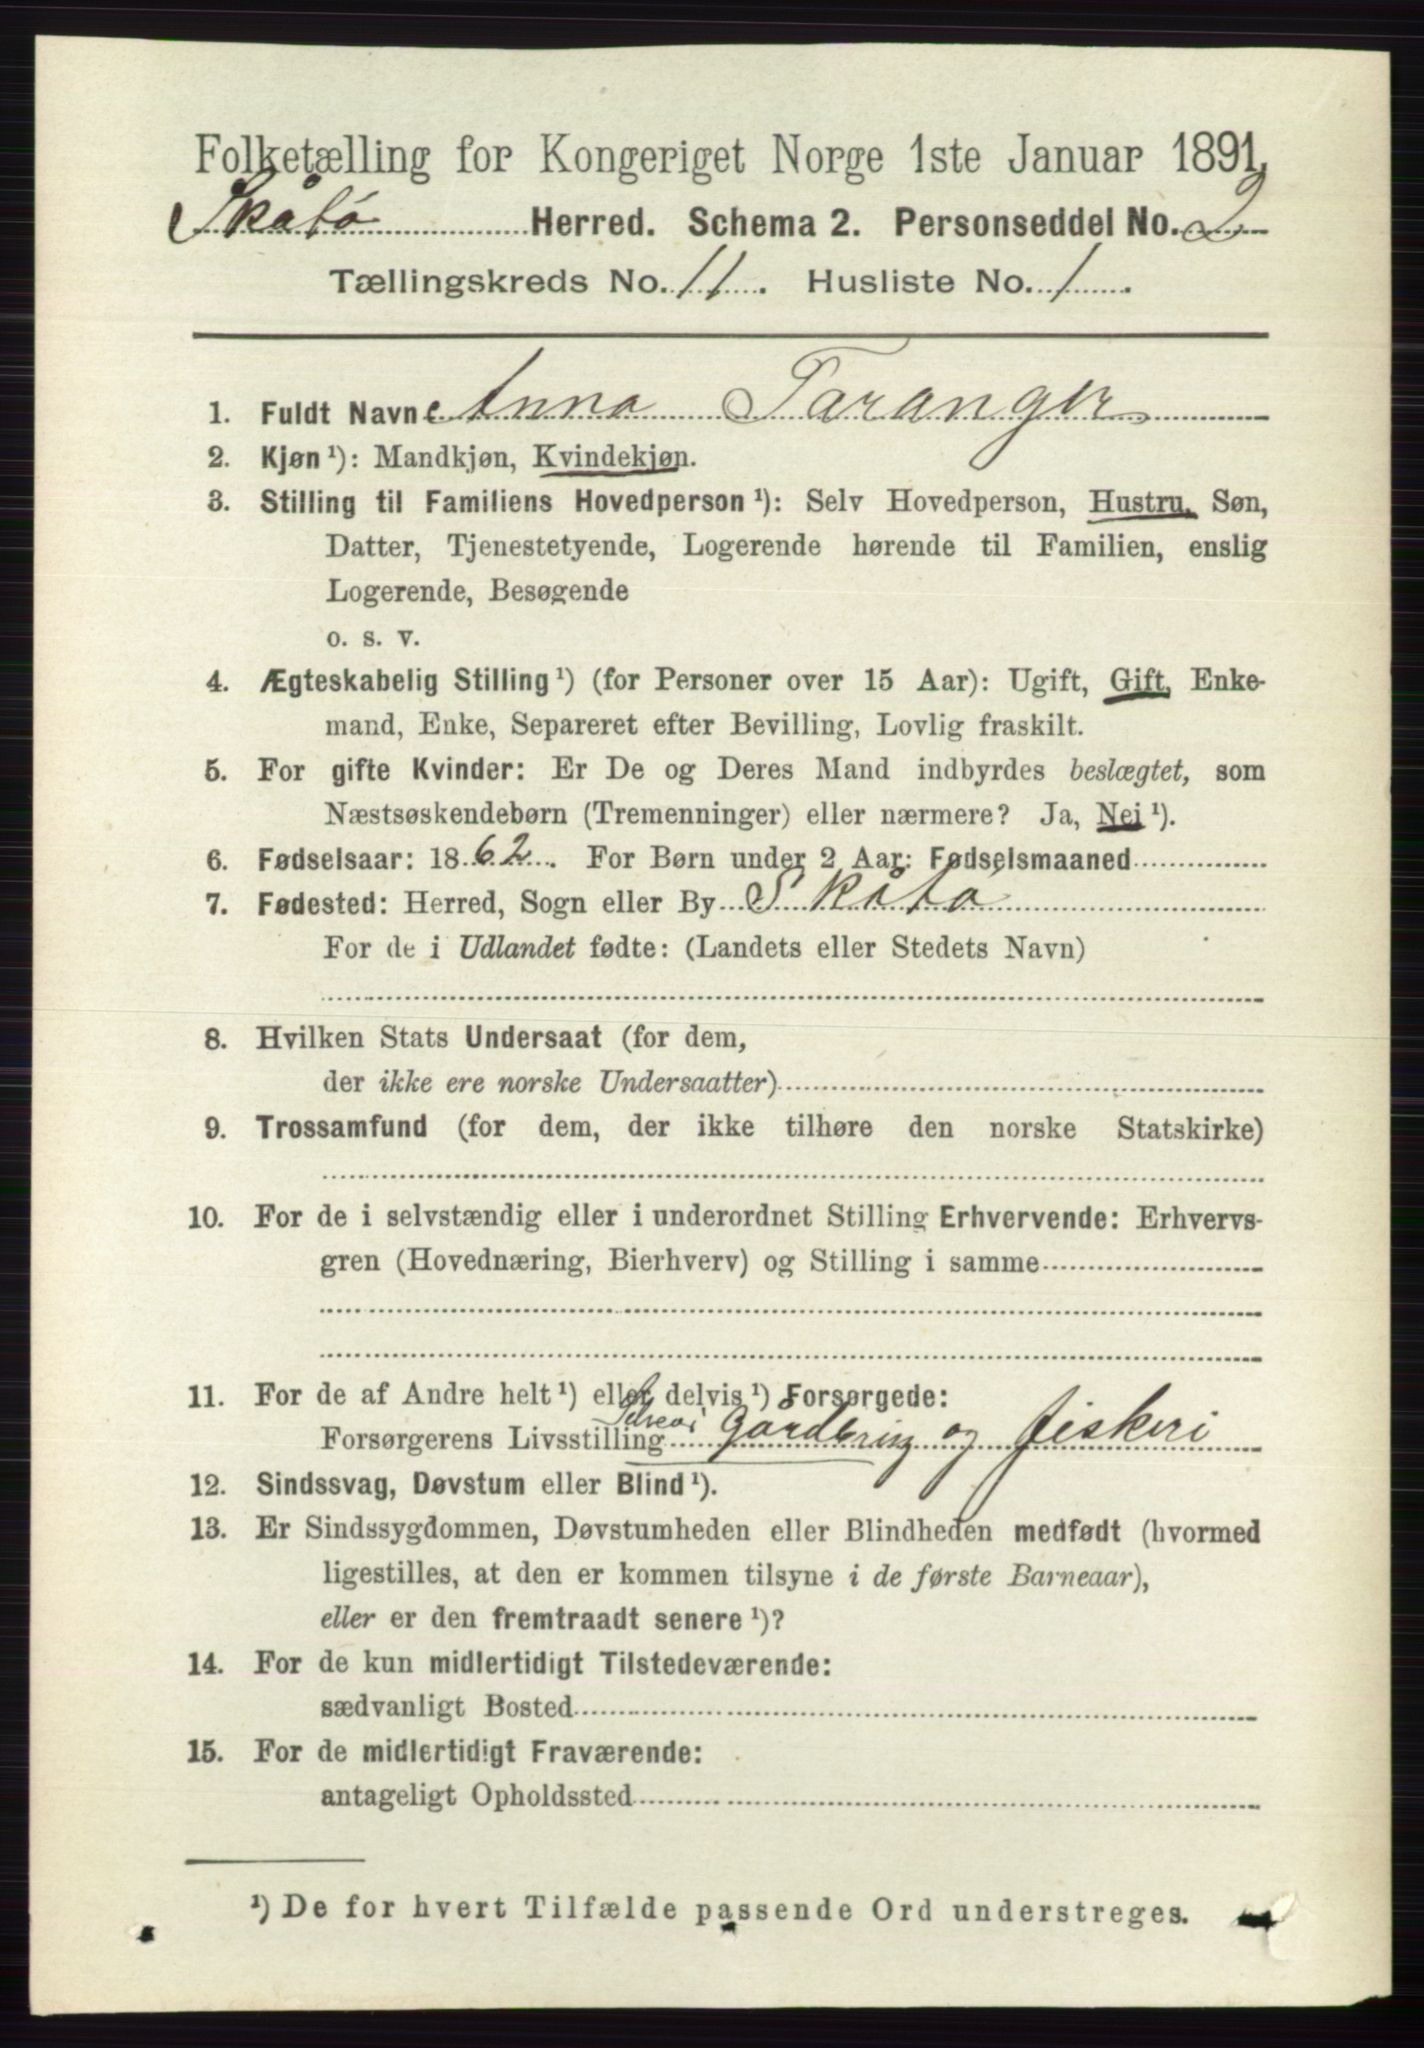 Folketælling for Kongeriget Norge 1ste Januar 1891.
Skåtø Herred. Schema 2. Personseddel No. 2
Tællingskreds No. 11. Husliste No. 1.
1. Fuldt Navn: Anna Taranger
2. Kjøn¹): Mandkjøn, Kvindekjøn.
3. Stilling til Familiens Hovedperson¹): Selv Hovedperson, Hustru, Søn,
Datter, Tjenestetyende, Logerende hørende til Familien, enslig
Logerende, Besøgende
o. s. v.
4. Ægteskabelig Stilling¹) (for Personer over 15 Aar): Ugift, Gift, Enke-
mand, Enke, Separeret efter Bevilling, Lovlig fraskilt.
5. For gifte Kvinder: Er De og Deres Mand indbyrdes beslægtet, som
Næstsøskendebørn (Tremenninger) eller nærmere? Ja, Nei¹).
6. Fødselsaar: 1862. For Børn under 2 Aar: Fødselsmaaned
7. Fødested: Herred, Sogn eller By Skåtø
For de i Udlandet fødte: (Landets eller Stedets Navn)
8. Hvilken Stats Undersaat (for dem,
der ikke ere norske Undersaatter)
9. Trossamfund (for dem, der ikke tilhøre den norske Statskirke)
10. For de i selvstændig eller i underordnet Stilling Erhvervende: Erhvervs-
gren (Hovednæring, Bierhverv) og Stilling i samme
11. For de af Andre helt¹) eller delvis¹) Forsørgede:
Forsørgerens Livsstilling Gårdbrug og fiskeri
12. Sindssvag, Døvstum eller Blind¹).
13. Er Sindssygdommen, Døvstumheden eller Blindheden medfødt (hvormed
ligestilles, at den er kommen tilsyne i de første Barneaar),
eller er den fremtraadt senere¹)?
14. For de kun midlertidigt Tilstedeværende:
sædvanligt Bosted
15. For de midlertidigt Fraværende:
antageligt Opholdssted
¹) De for hvert Tilfælde passende Ord understreges.